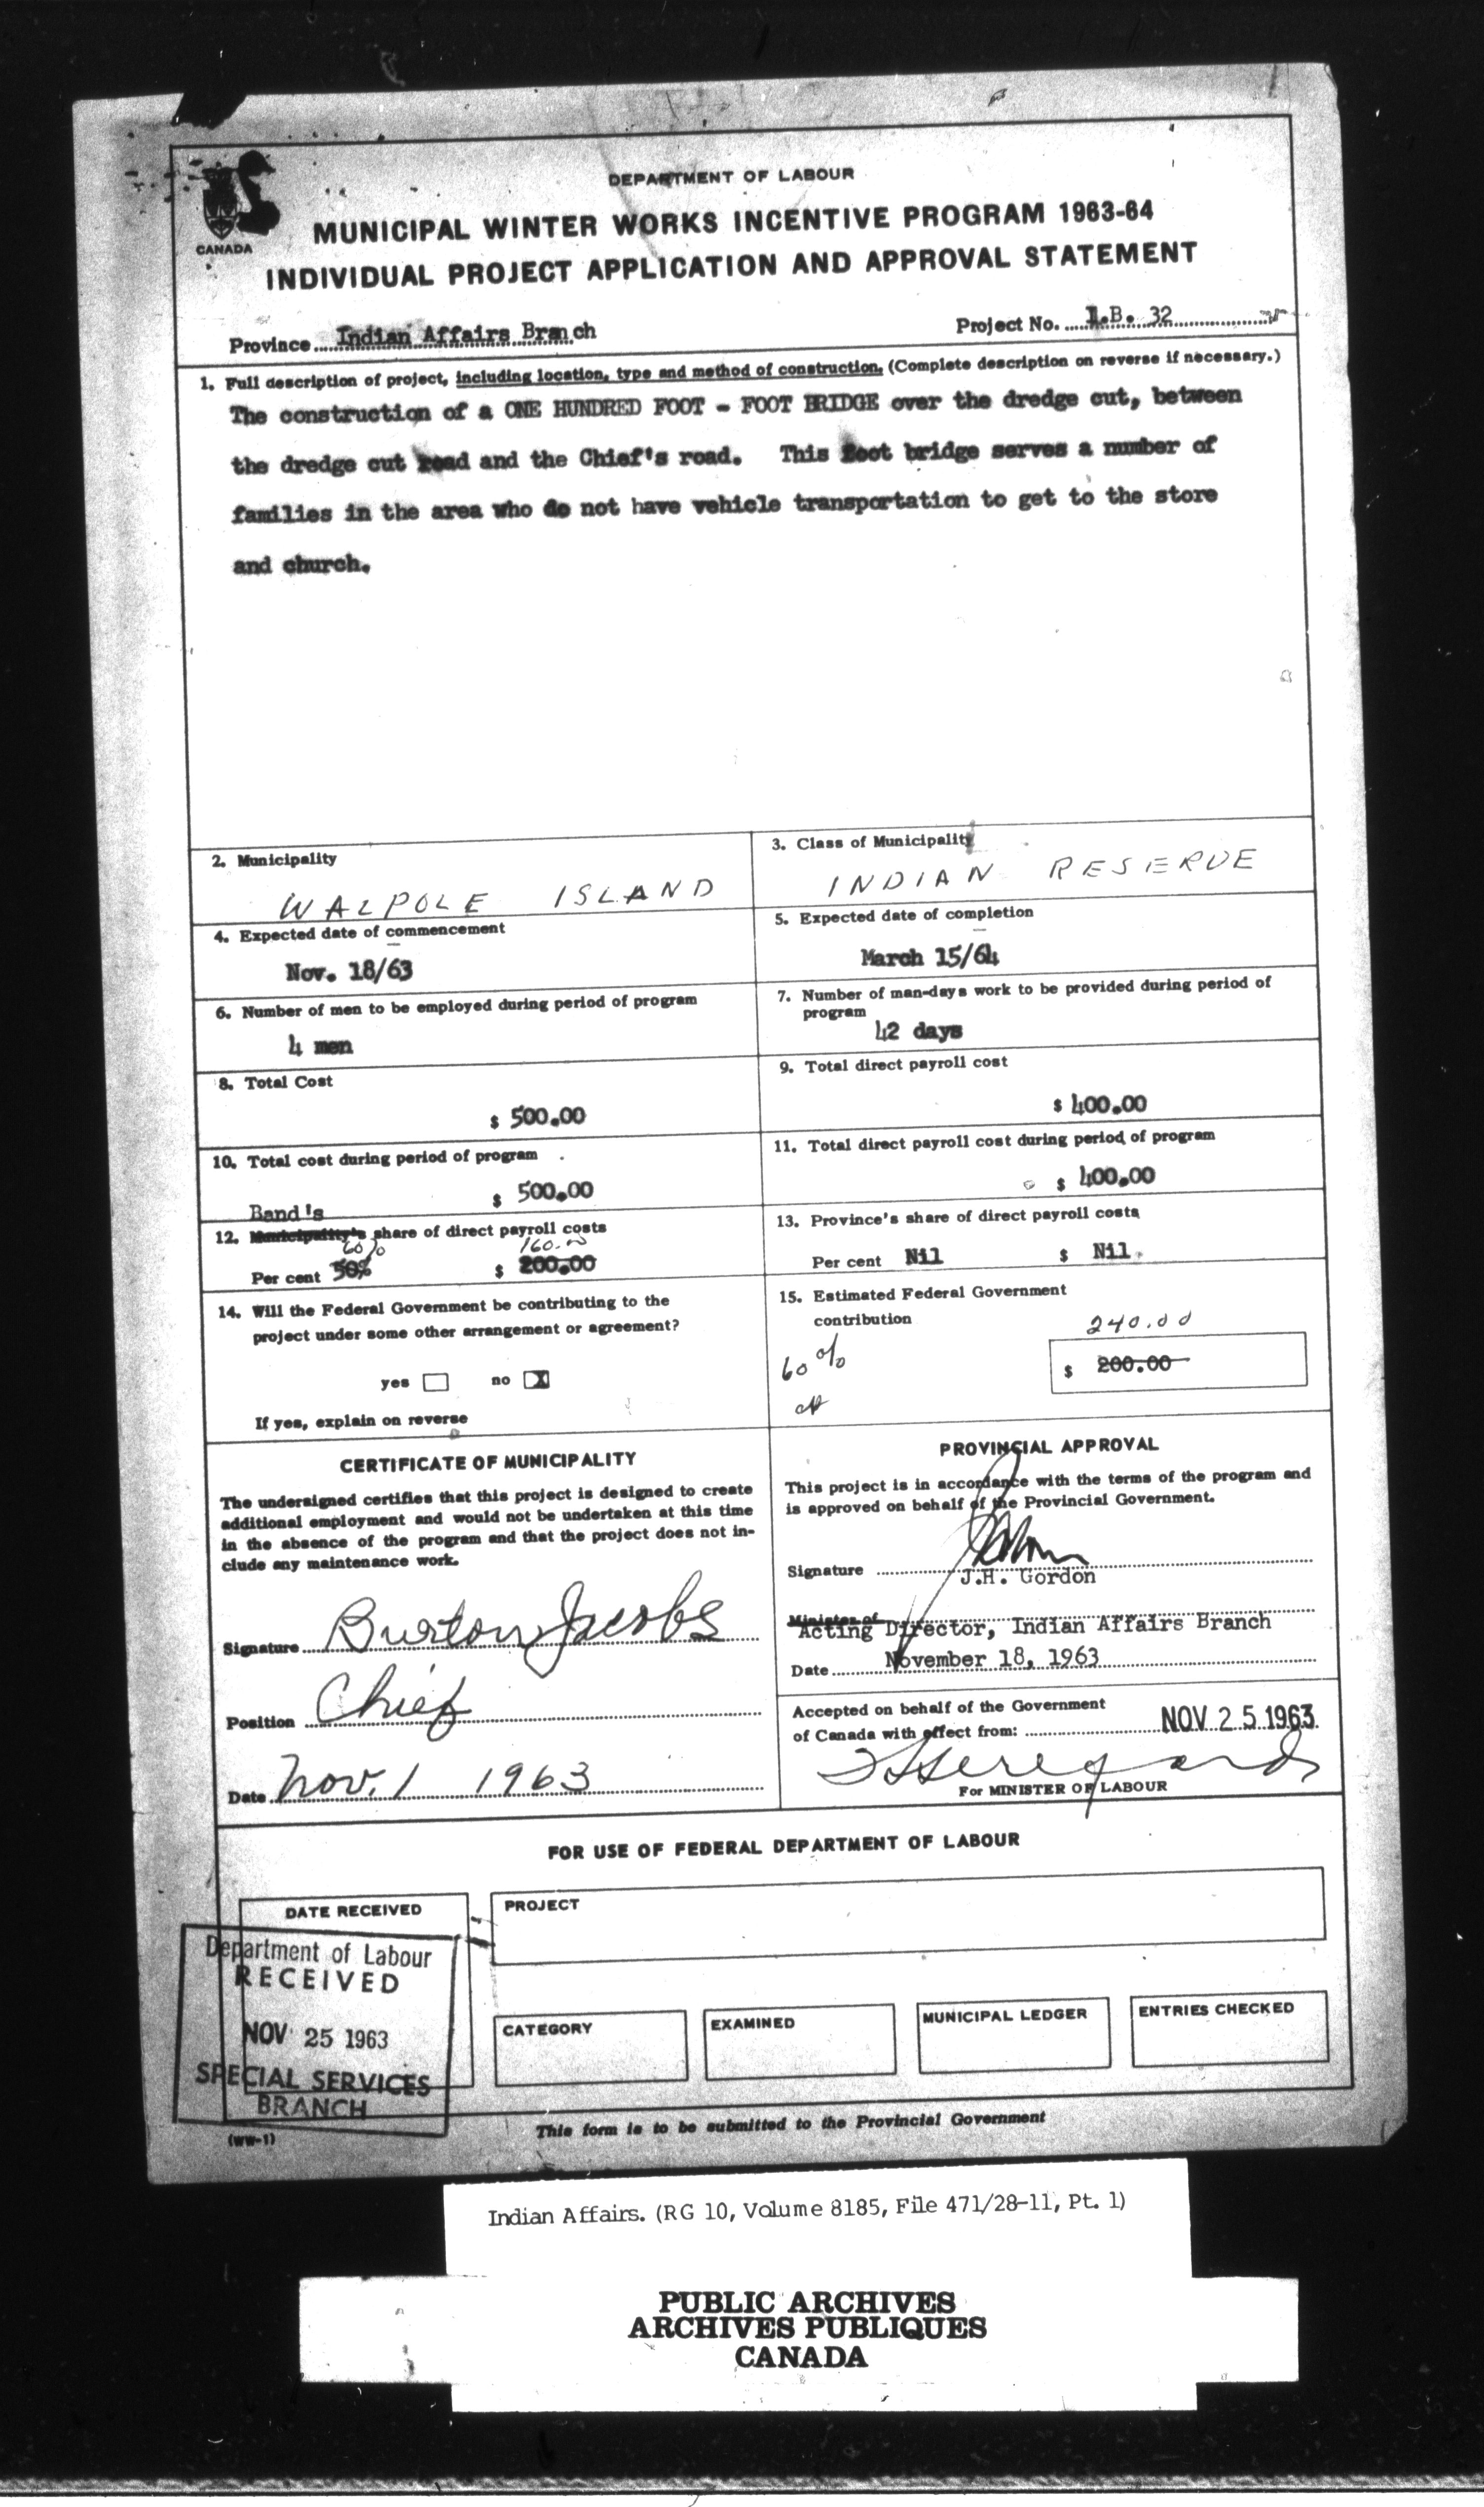 DEPARTMENT OF LABOUR
MUNICIPAL WINTER WORKS INCENTIVE PROGRAM 1963-64
INDIVIDUAL PROJECT APPLICATION AND APPROVAL STATEMENT
CANADA
Province Indian Affairs Branch
Project No. I.B. 32
1. Full description of project, including location, type and method of construction. (Complete description on reverse if necessary.)
The construction of a ONE HUNDRED FOOT - FOOT BRIDGE over the dredge cut, between
the dredge cut road and the Chief's road. This foot bridge serves a number of
families in the area who do not have vehicle transportation to get to the store
and church.
2. Municipality
WALPOLE ISLAND
3. Class of Municipality
INDIAN RESERVE
4. Expected date of commencement
Nov. 18/63
5. Expected date of completion
March 15/64
6. Number of men to be employed during period of program
4 men
7. Number of man-days work to be provided during period of
program
42 days
8. Total Cost
$ 500.00
9. Total direct payroll cost
$ 400.00
10. Total cost during period of program
$ 500.00
11. Total direct payroll cost during period of program
$ 400.00
Band's
12. Municipality's share of direct payroll costs
60% 160.00
Per cent 50% $ 200.00
13. Province's share of direct payroll costs
Per cent Nil $ Nil.
14. Will the Federal Government be contributing to the
project under some other arrangement or agreement?
yes no X
If yes, explain on reverse
15. Estimated Federal Government
contribution
240.00
60%
$ 200.00
CERTIFICATE OF MUNICIPALITY
The undersigned certifies that this project is designed to create
additional employment and would not be undertaken at this time
in the absence of the program and that the project does not in-
clude any maintenance work.
Signature Burton Jacobs
Position Chief
Date Nov. 1 1963
PROVINCIAL APPROVAL
This project is in accordance with the terms of the program and
is approved on behalf of the Provincial Government.
Signature
J.H. Gordon
Minister of
Acting Director, Indian Affairs Branch
Date November 18, 1963
Accepted on behalf of the Government
of Canada with effect from: NOV 25 1963
For MINISTER OF LABOUR
FOR USE OF FEDERAL DEPARTMENT OF LABOUR
DATE RECEIVED
PROJECT
Department of Labour
RECEIVED
NOV 25 1963
SPECIAL SERVICES
BRANCH
CATEGORY
EXAMINED
MUNICIPAL LEDGER
ENTRIES CHECKED
(WW-1)
This form is to be submitted to the Provincial Government
Indian Affairs. (RG 10, Volume 8185, File 471/28-11, Pt. 1)
PUBLIC ARCHIVES
ARCHIVES PUBLIQUES
CANADA